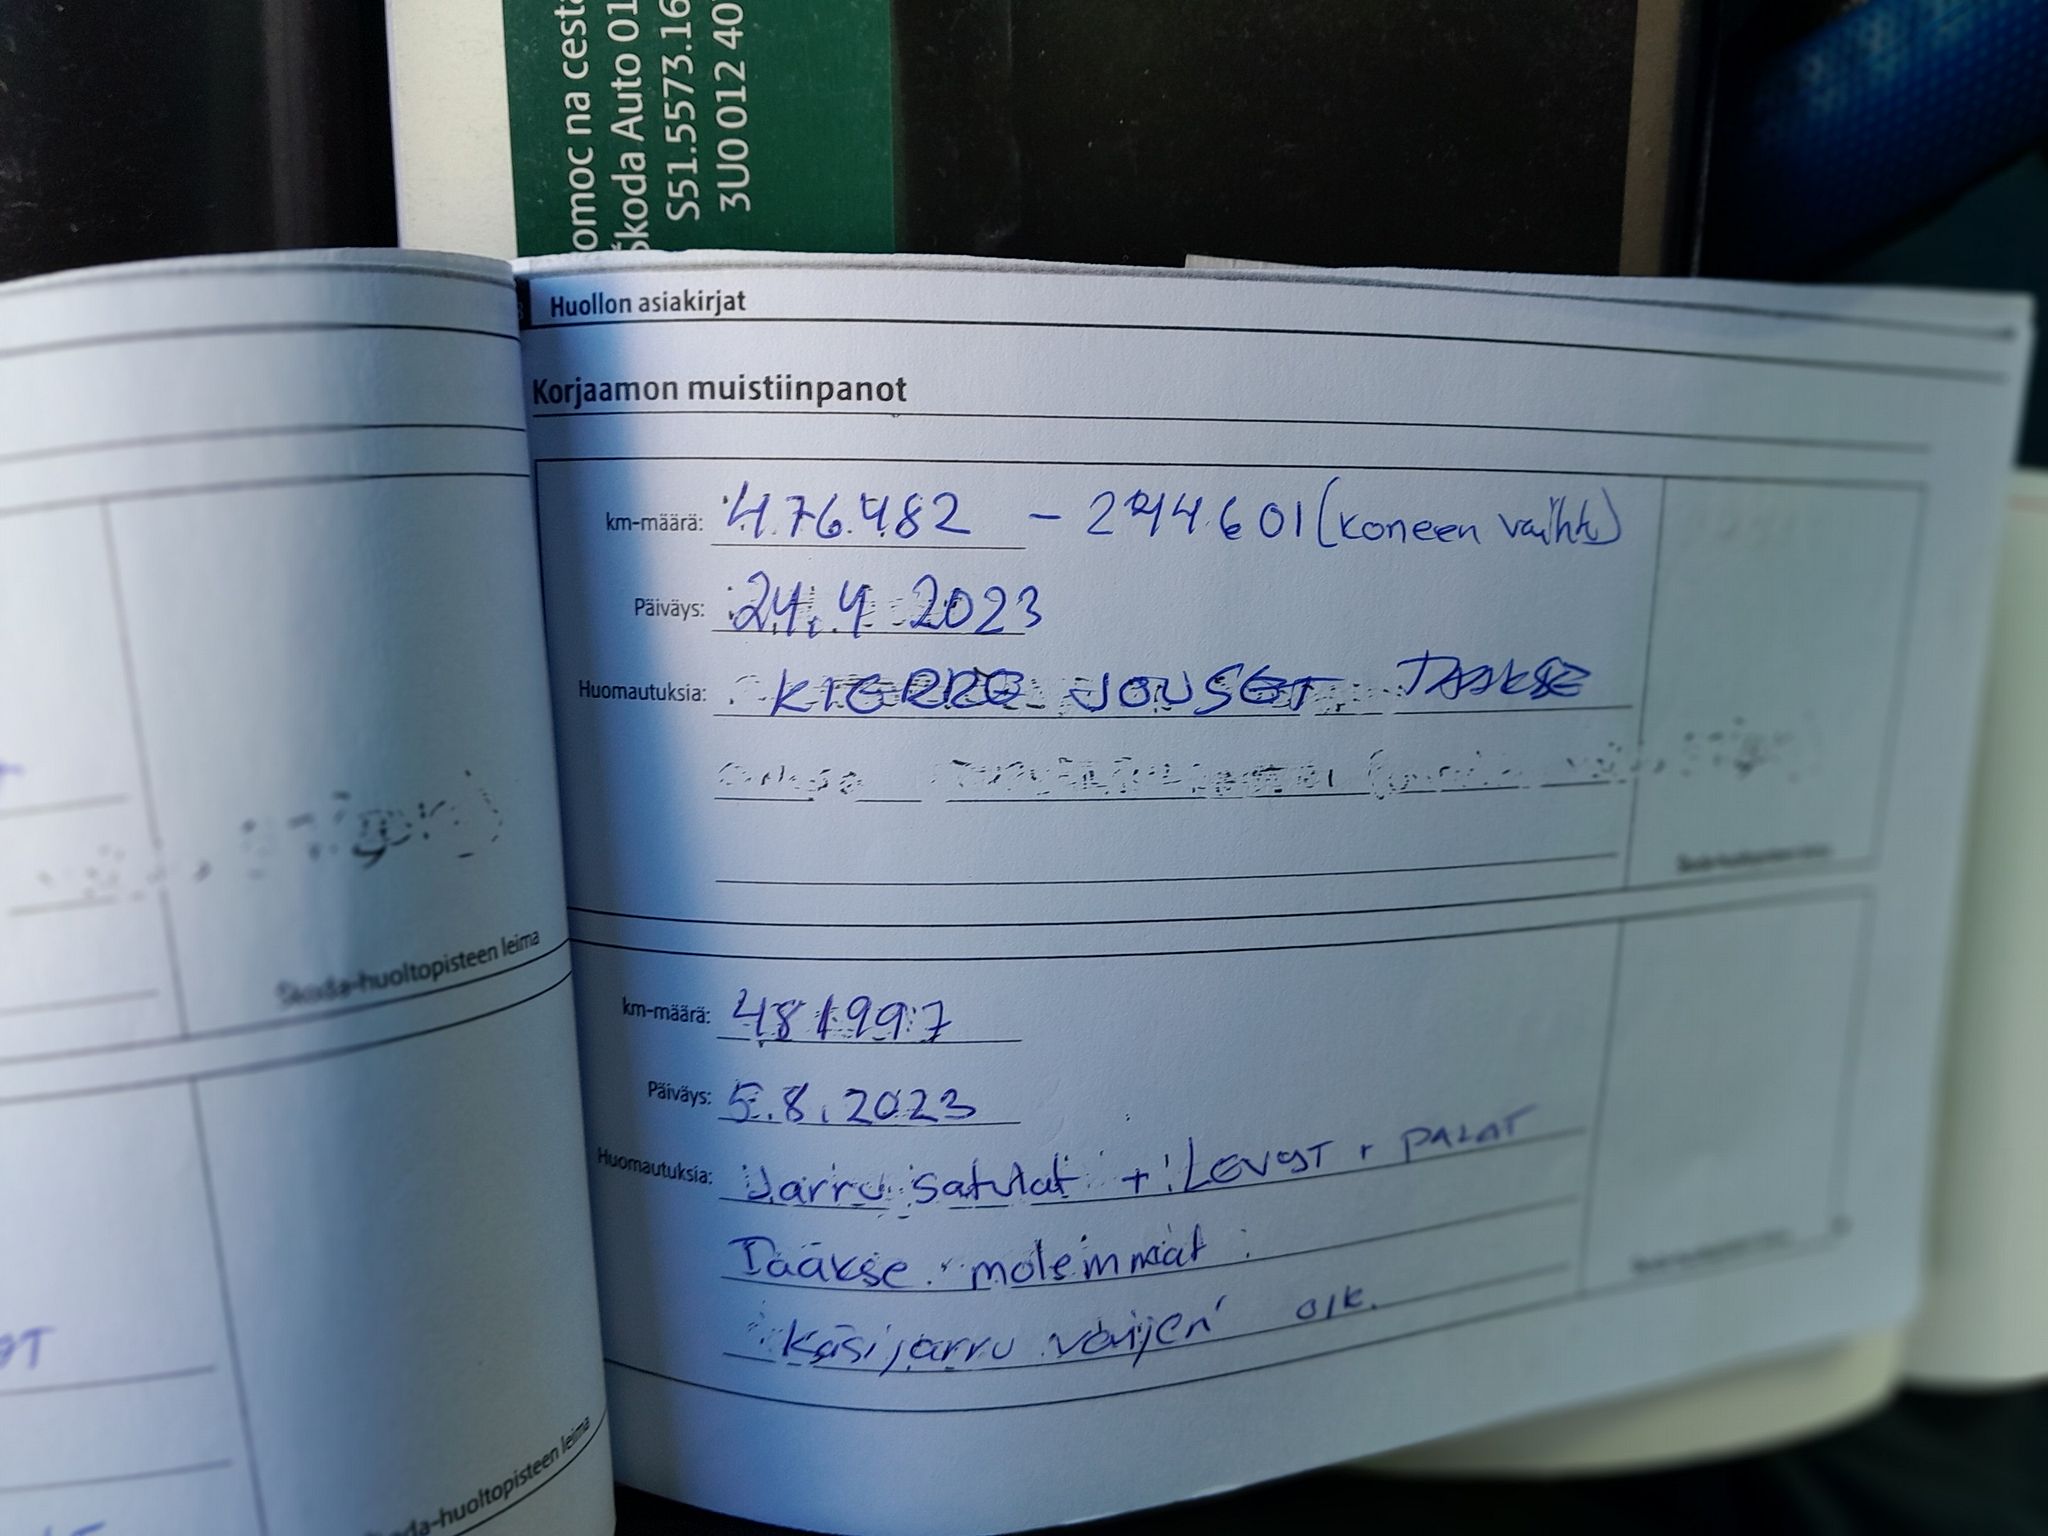 omoc na cesta
Škoda Auto 01
S51.5573.16
3U0 012 40
Huollon asiakirjat
Korjaamon muistiinpanot
km-määrä: 476.482 - 244.601 (koneen vaihto)
Päiväys: 24.4 2023
Huomautuksia: KIERRE JOUSET TAAKSE
km-määrä: 481997
Päiväys: 5.8.2023
Huomautuksia: Jarru satulat + LEVYT + PALAT
Taakse molemmat
Käsijarru vaijeri oik.
Skoda-huoltopisteen leima
Skoda-huoltopisteen leima